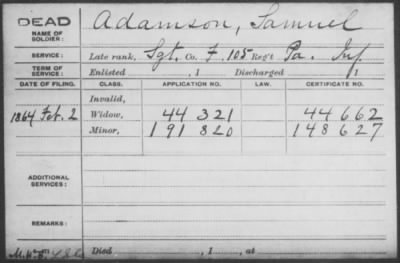 DEAD
NAME OF SOLDIER: Adamson, Samuel
SERVICE: Late rank, Sgt. Co. F, 105 Reg't Pa. Inf
TERM OF SERVICE: Enlisted , 1 Discharged 1
DATE OF FILING. CLASS. APPLICATION NO. LAW. CERTIFICATE NO.
Invalid,
1864 Feb. 2 Widow, 44 321 44 662
Minor, 191 820 148 627
ADDITIONAL SERVICES:
REMARKS:
Died , 1 , at